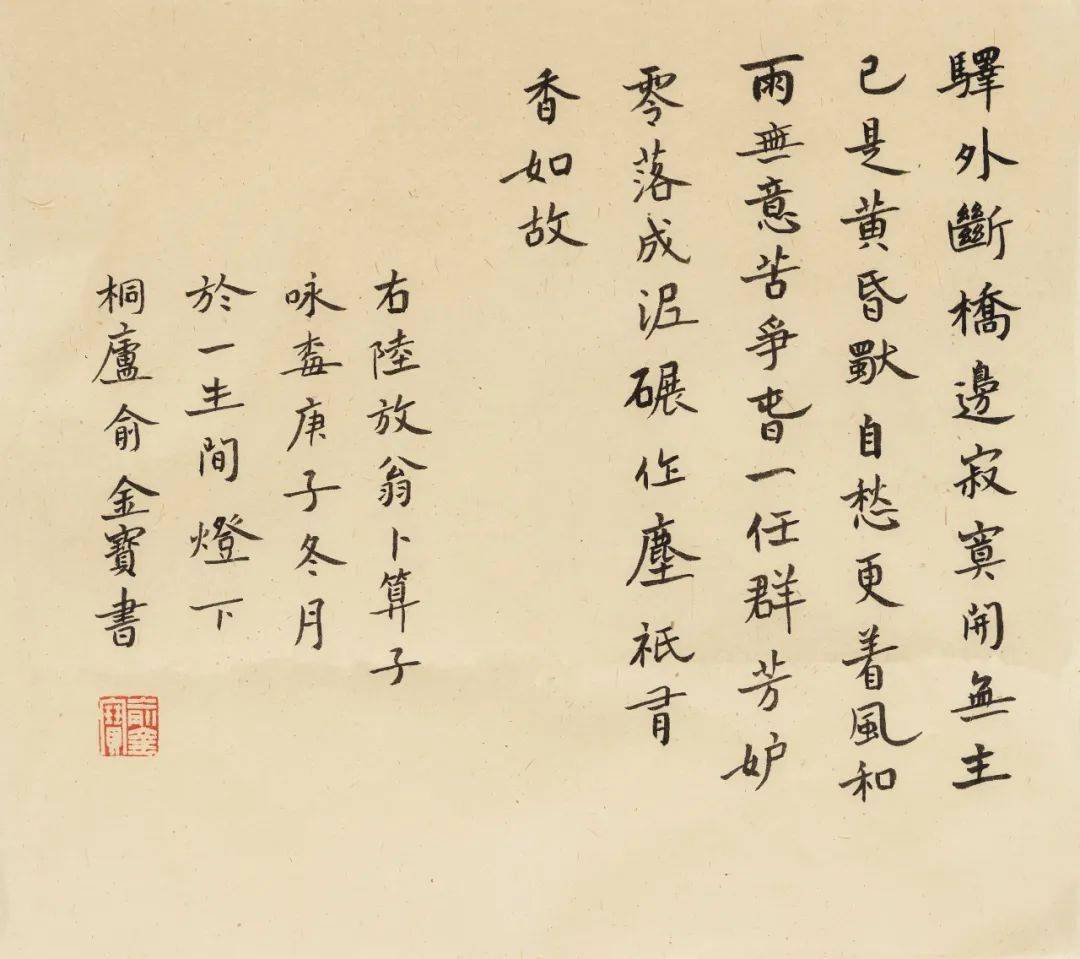 驛外斷橋邊寂寞開無主
已是黃昏獸自愁更着風和
雨無意苦爭春一任群芳妒
零落成泥碾作塵祇有
香如故
右陸放翁卜算子
咏梅庚子冬月
於一生間燈下
桐廬俞金寶書
俞金寶